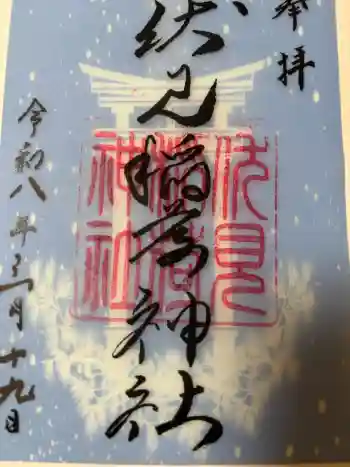 奉拝
伏見稲荷神社
伏見
稲荷
神社
令和八年三月十九日